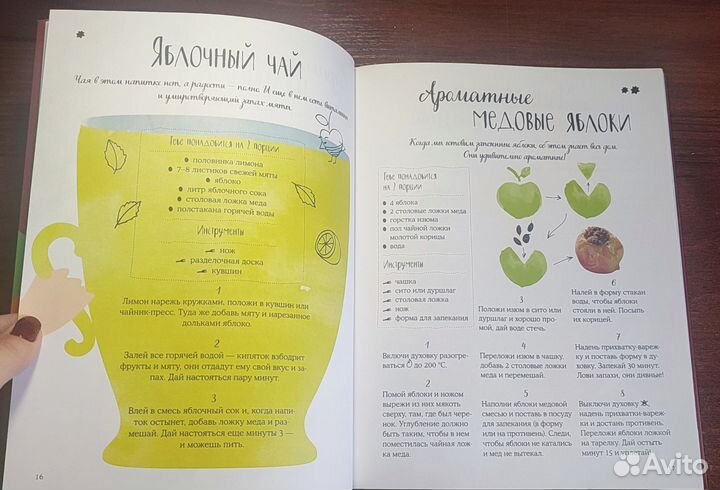 Яблочный чай
Чая в этом напитке нет, а радости — полно. И еще в нем есть витамины
и умиротворяющий запах мяты.
Тебе понадобится на 2 порции
половинка лимона
7–8 листиков свежей мяты
яблоко
литр яблочного сока
столовая ложка меда
полстакана горячей воды
Инструменты
нож
разделочная доска
кувшин
1
Лимон нарежь кружками, положи в кувшин или
чайник-пресс. Туда же добавь мяту и нарезанное
дольками яблоко.
2
Залей все горячей водой — кипяток взбодрит
фрукты и мяту, они отдадут ему свой вкус и за-
пах. Дай настояться пару минут.
3
Влей в смесь яблочный сок и, когда напи-
ток остынет, добавь ложку меда и раз-
мешай. Дай настояться еще минуты 3 —
и можешь пить.
16
Ароматные
медовые яблоки
Когда мы готовим запеченные яблоки, об этом знает весь дом.
Они удивительно ароматные!
Тебе понадобится
на 2 порции
4 яблока
2 столовые ложки меда
горстка изюма
пол чайной ложки
молотой корицы
вода
Инструменты
чашка
сито или дуршлаг
столовая ложка
нож
форма для запекания
1
Включи духовку разогре-
ваться до 200 °C.
2
Помой яблоки и ножом
вырежи из них мякоть
сверху, там, где был чере-
нок. Углубление должно
быть таким, чтобы в нем
поместилась чайная лож-
ка меда.
3
Положи изюм в сито или
дуршлаг и хорошо про-
мой, дай воде стечь.
4
Переложи изюм в чашку,
добавь 2 столовые ложки
меда и перемешай.
5
Наполни яблоки медовой
смесью и поставь в посуду
для запекания (в форму
или на противень). Следи,
чтобы яблоки не катались
и мед не вытекал.
6
Налей в форму стакан
воды, чтобы яблоки
стояли в ней. Посыпь
их корицей.
7
Надень прихватку-вареж-
ку и поставь форму в ду-
ховку. Запекай 30 минут.
Лови запахи, они дивные!
8
Выключи духовку,
надень прихватку-вареж-
ку и достань противень.
Переложи яблоки ложкой
на тарелку. Дай остыть
минут 15 и улетай!
Avito